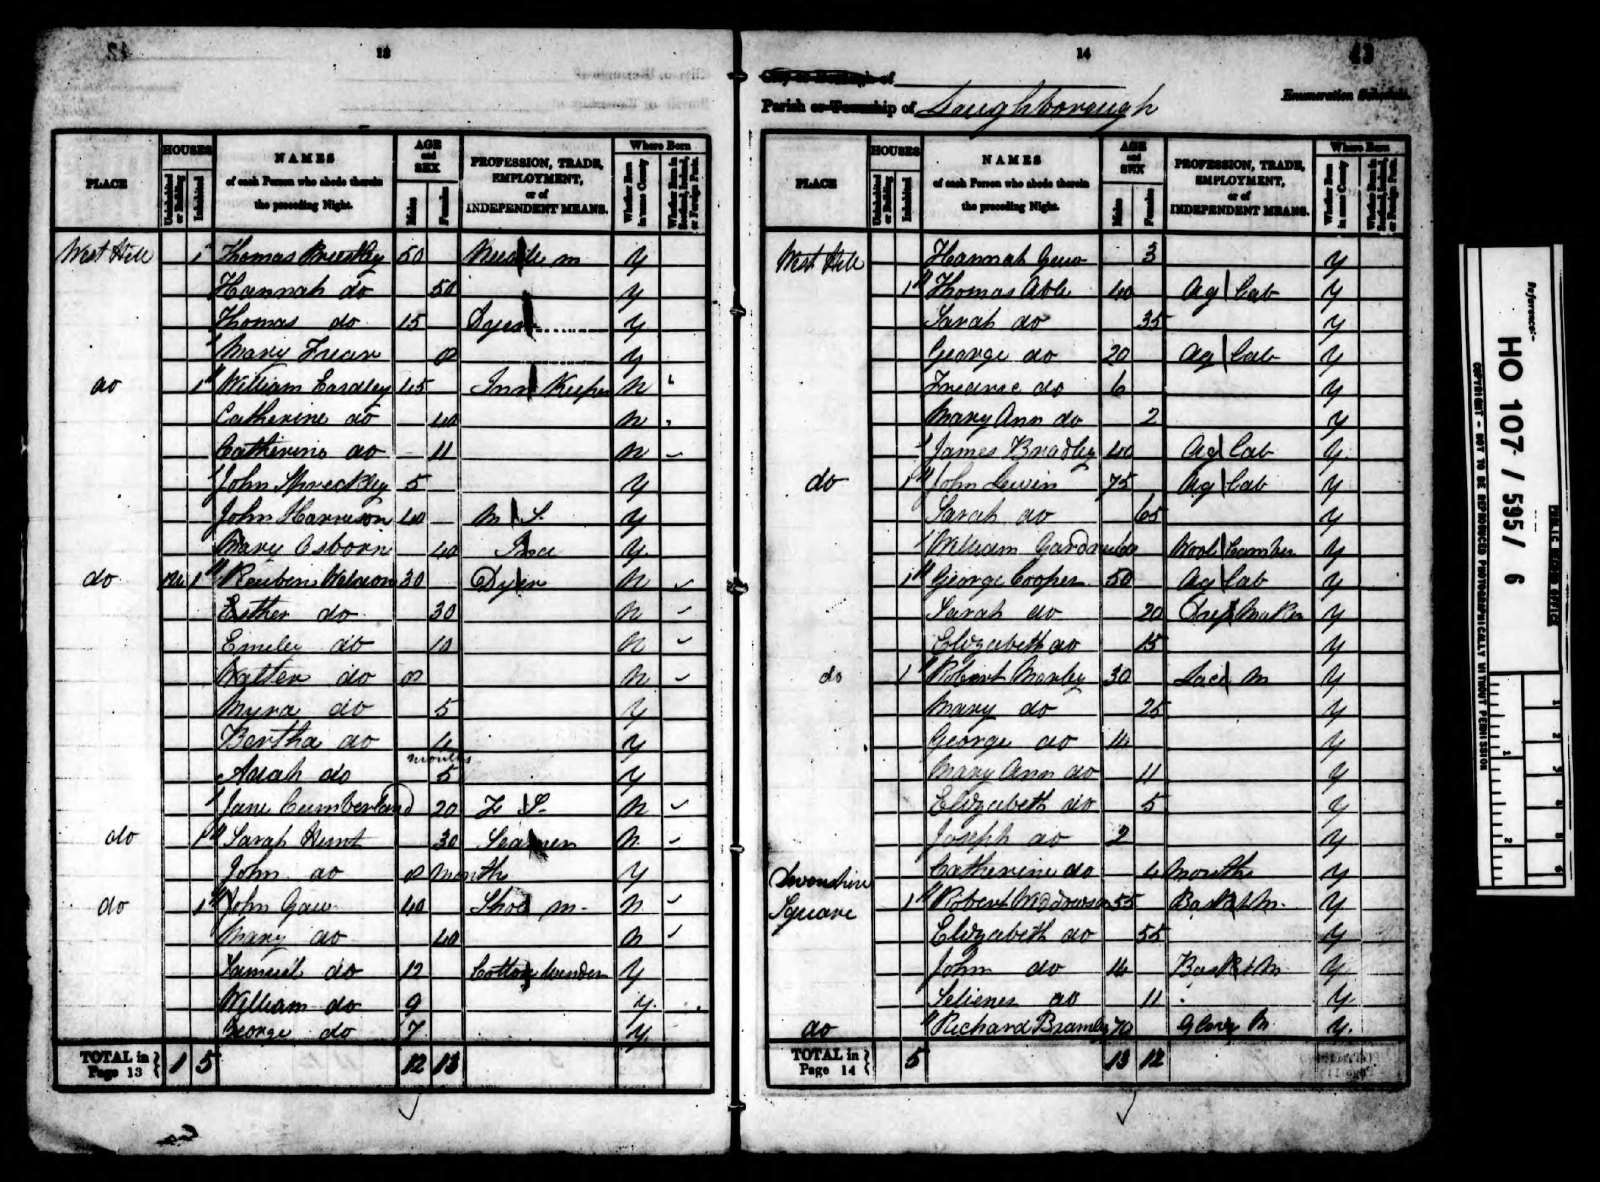 13
PLACE
HOUSES
Uninhabited or Building
Inhabited
NAMES
of each Person who abode therein
the preceding Night.
AGE
and
SEX
Males
Females
PROFESSION, TRADE,
EMPLOYMENT,
or of
INDEPENDENT MEANS.
Where Born
Whether Born in same County
Whether Born in Scotland, Ireland, or Foreign Parts.
West Hill 1 Thomas 50 Needle m Y
Hannah do 50 Y
Thomas do 15 Dyer Y
Mary 8 Y
do 1 William Eardley 45 Inn Keeper N
Catherine do 40 N
Catherine do 11 N
John Shreckley 5 Y
John Harrison 40 M S. Y
Mary Osborn 40 Ind Y
do 1 Reuben 30 Dyer N
Esther do 30 N
Emeley do 10 N
Walter do 8 N
Myra do 5 Y
Bertha do 4 Y
months
Adah do 5 Y
Jane Cumberland 20 F S. N
do 1 Sarah Hunt 30 Seamer N
John do 8 Months Y
do 1 John Gaw 40 Shoe m. N
Mary do 40 N
Samuel do 12 Cotton Winder Y
William do 9 Y.
George do 7 Y.
TOTAL in Page 13 1 5 12 13
14
43
City or Borough of
Parish or Township of Loughborough
Enumeration Schedule.
PLACE
HOUSES
Uninhabited or Building
Inhabited
NAMES
of each Person who abode therein
the preceding Night.
AGE
and
SEX
Males
Females
PROFESSION, TRADE,
EMPLOYMENT,
or of
INDEPENDENT MEANS.
Where Born
Whether Born in same County
Whether Born in Scotland, Ireland, or Foreign Parts.
West Hill Hannah Gaw 3 Y
1 Thomas Able 40 Ag Lab Y
Sarah do 35 Y
George do 20 Ag Lab Y
Frederic do 6 Y
Mary Ann do 2 Y
James Bradley 40 Ag Lab Y.
do 1 John Lewin 75 Ag Lab Y
Sarah do 65 Y
William Gardner 60 Wool Comber Y
1 George Cooper 50 Ag Lab Y
Sarah do 20 Dress Maker Y
Elizabeth do 15 Y
do 1 Robert Marley 30 Lace M Y
Mary do 25 Y
George do 14 Y
Mary Ann do 11 Y
Elizabeth do 5 Y
Joseph do 2 Y
Devonshire Catherine do 4 Months Y
Square 1 Robert Widdowson 55 Baskt M. Y
Elizabeth do 55 Y
John do 14 Baskt M Y
Selienes do 11 Y
do Richard Bramley 70 Glove M Y.
TOTAL in Page 14 5 13 12
Reference:-
HO 107 / 595 / 6
PUBLIC RECORD OFFICE
COPYRIGHT - NOT TO BE REPRODUCED PHOTOGRAPHICALLY WITHOUT PERMISSION
1
2
3
4
5
6
1
2